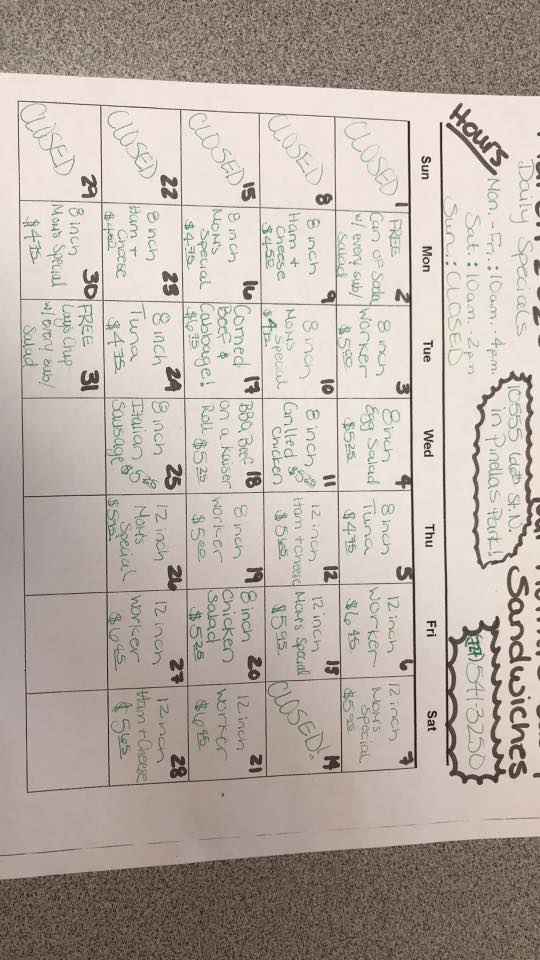 Daily Specials
Sandwiches
Hours
Mon.-Fri.: 10am.-4pm.
Sat.: 10am.-2pm
Sun.: CLOSED
10555 66th St. N.
in Pinellas Park!
541-3250
Sun Mon Tue Wed Thu Fri Sat
1
CLOSED
2
FREE
Can of Soda
w/ every sub/
Salad
3
8 inch
Worker
$5.00
4
8 inch
Egg Salad
$5.25
5
8 inch
Tuna
$4.75
6
12 inch
Worker
$6.45
7
12 inch
Mom's
Special
8
CLOSED
9
8 inch
Ham +
Cheese
$4.50
10
8 inch
Mom's
Special
11
8 inch
Grilled
Chicken
12
12 inch
Ham + Cheese
$5.65
13
12 inch
Mom's Special
$5.95
14
CLOSED!
15
CLOSED
16
8 inch
Mom's
Special
$4.75
17
Corned
Beef &
Cabbage!
$6.75
18
BBQ Beef
on a Kaiser
Roll $5.25
19
8 inch
Worker
$5.00
20
8 inch
Chicken
Salad
$5.25
21
12 inch
Worker
$6.45
22
CLOSED
23
8 inch
Ham +
Cheese
24
8 inch
Tuna
$4.75
25
8 inch
Italian
Sausage
26
12 inch
Mom's
Special
27
12 inch
Worker
$6.45
28
12 inch
Ham + Cheese
$5.65
29
CLOSED
30
8 inch
Mom's Special
$4.75
31
FREE
Lays Chip
w/ every sub/
Salad